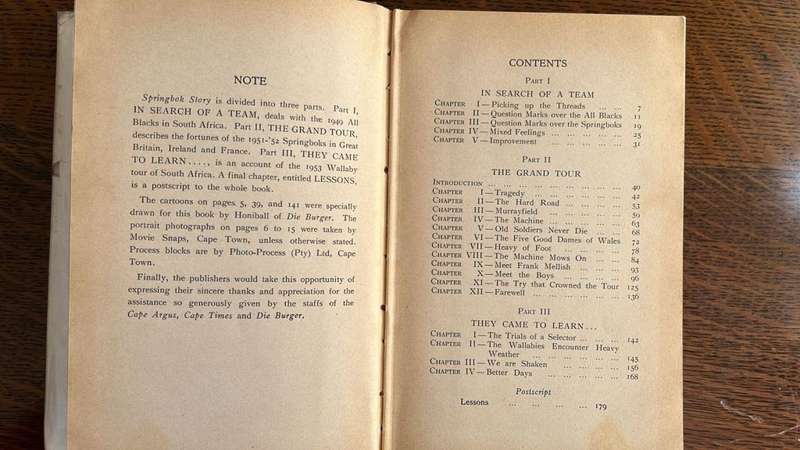 NOTE
Springbok Story is divided into three parts. Part I,
IN SEARCH OF A TEAM, deals with the 1949 All
Blacks in South Africa. Part II, THE GRAND TOUR,
describes the fortunes of the 1951-'52 Springboks in Great
Britain, Ireland and France. Part III, THEY CAME
TO LEARN...., is an account of the 1953 Wallaby
tour of South Africa. A final chapter, entitled LESSONS,
is a postscript to the whole book.
The cartoons on pages 5, 39, and 141 were specially
drawn for this book by Honiball of Die Burger. The
portrait photographs on pages 6 to 15 were taken by
Movie Snaps, Cape Town, unless otherwise stated.
Process blocks are by Photo-Process (Pty) Ltd, Cape
Town.
Finally, the publishers would take this opportunity of
expressing their sincere thanks and appreciation for the
assistance so generously given by the staffs of the
Cape Argus, Cape Times and Die Burger.
CONTENTS
PART I
IN SEARCH OF A TEAM
CHAPTER I—Picking up the Threads ... ... 7
CHAPTER II—Question Marks over the All Blacks 11
CHAPTER III—Question Marks over the Springboks 19
CHAPTER IV—Mixed Feelings ... ... ... ... ... 25
CHAPTER V—Improvement ... ... ... ... ... 31
PART II
THE GRAND TOUR
INTRODUCTION ... ... ... ... ... ... ... ... 40
CHAPTER I—Tragedy ... ... ... ... ... ... 42
CHAPTER II—The Hard Road ... ... ... ... 53
CHAPTER III—Murrayfield ... ... ... ... ... 59
CHAPTER IV—The Machine ... ... ... ... ... 63
CHAPTER V—Old Soldiers Never Die ... ... 68
CHAPTER VI—The Five Good Dames of Wales 72
CHAPTER VII—Heavy of Foot ... ... ... ... 78
CHAPTER VIII—The Machine Mows On ... ... 84
CHAPTER IX—Meet Frank Mellish ... ... ... 93
CHAPTER X—Meet the Boys ... ... ... ... 96
CHAPTER XI—The Try that Crowned the Tour 125
CHAPTER XII—Farewell ... ... ... ... ... ... 136
PART III
THEY CAME TO LEARN...
CHAPTER I—The Trials of a Selector ... ... ... 142
CHAPTER II—The Wallabies Encounter Heavy
Weather ... ... ... ... ... ... 145
CHAPTER III—We are Shaken ... ... ... ... 156
CHAPTER IV—Better Days ... ... ... ... ... 168
Postscript
Lessons ... ... ... ... 179